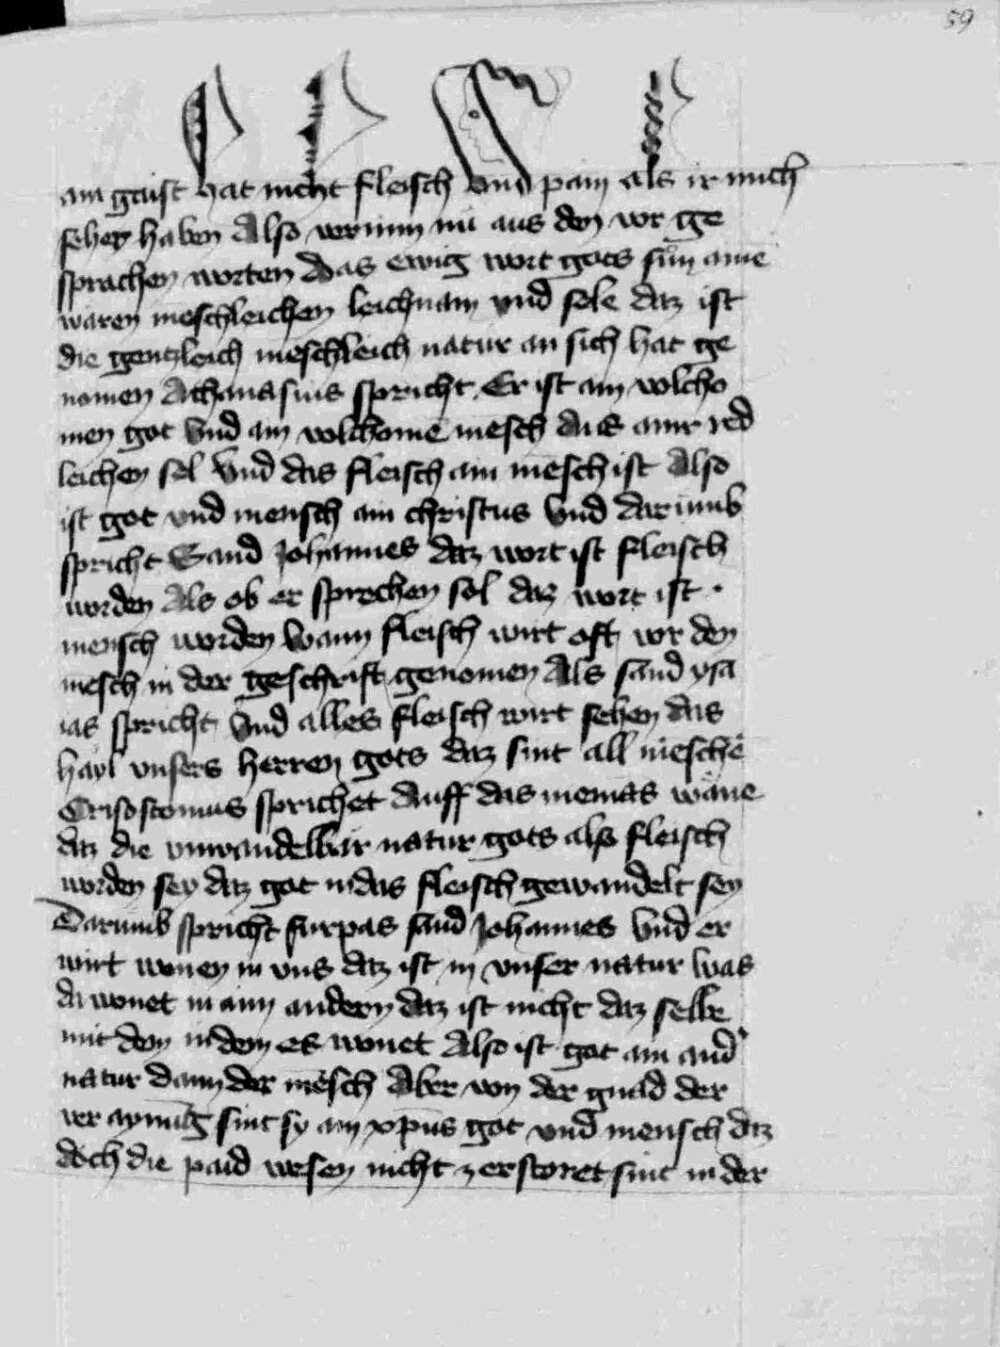 59
ain gaist hat nicht fleisch und pain als ir mich
sehen haben Also vernim nu aus den vor ge
sprachen worten Das ewig wort gots sun aine
waren meschleichen leichnam und sele daz ist
die gentzleich meschleich natur an sich hat ge
nomen Athanasius spricht Er ist ain volcho
men got und ain volchome mesch aus ainr red
leichen sel Und das fleisch ain mesch ist Also
ist got und mensch ain christus Und darumb
spricht Sand Johannes daz wort ist fleisch
worden Als ob er sprechen sol daz wort ist
mensch worden Wann fleisch wirt oft vor den
mesch in der geschrift genomen Als sand ysa
ias spricht Und alles fleisch wirt sehen das
hayl unsers herren gots daz sint all mesche
Crisostomus sprichet Auff das niemäs wäne
daz die unwandelbär natur gots also fleisch
worden sey daz got in das fleisch gewandelt sey
Darumb spricht furpas sand Johannes Und er
wirt wonen in uns daz ist in unser natur Was
da wonet in ainn andern daz ist nicht daz selbe
mit dem in dem es wonet Also ist got ain and'
natur dann der mesch Aber von der gnad der
ver aynung sint sy ain xpūs got und mensch daz
doch die paid wesen nicht zerstoret sint in der